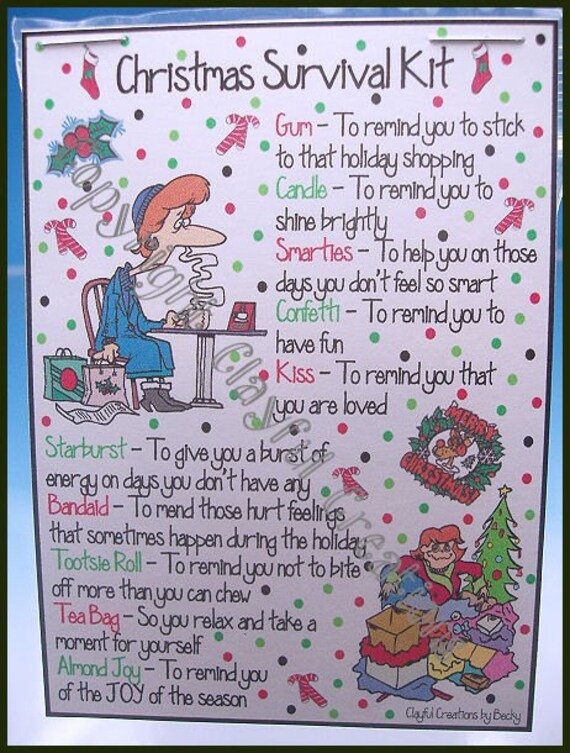 Christmas Survival Kit
Gum - To remind you to stick
to that holiday shopping
Candle - To remind you to
shine brightly
Smarties - To help you on those
days you don't feel so smart
Confetti - To remind you to
have fun
Kiss - To remind you that
you are loved
MERRY
CHRISTMAS!
Starburst - To give you a burst of
energy on days you don't have any
Bandaid - To mend those hurt feelings
that sometimes happen during the holiday
Tootsie Roll - To remind you not to bite
off more than you can chew
Tea Bag - So you relax and take a
moment for yourself
Almond Joy - To remind you
of the JOY of the season
Clayful Creations by Becky
Copyright Clayful Creations